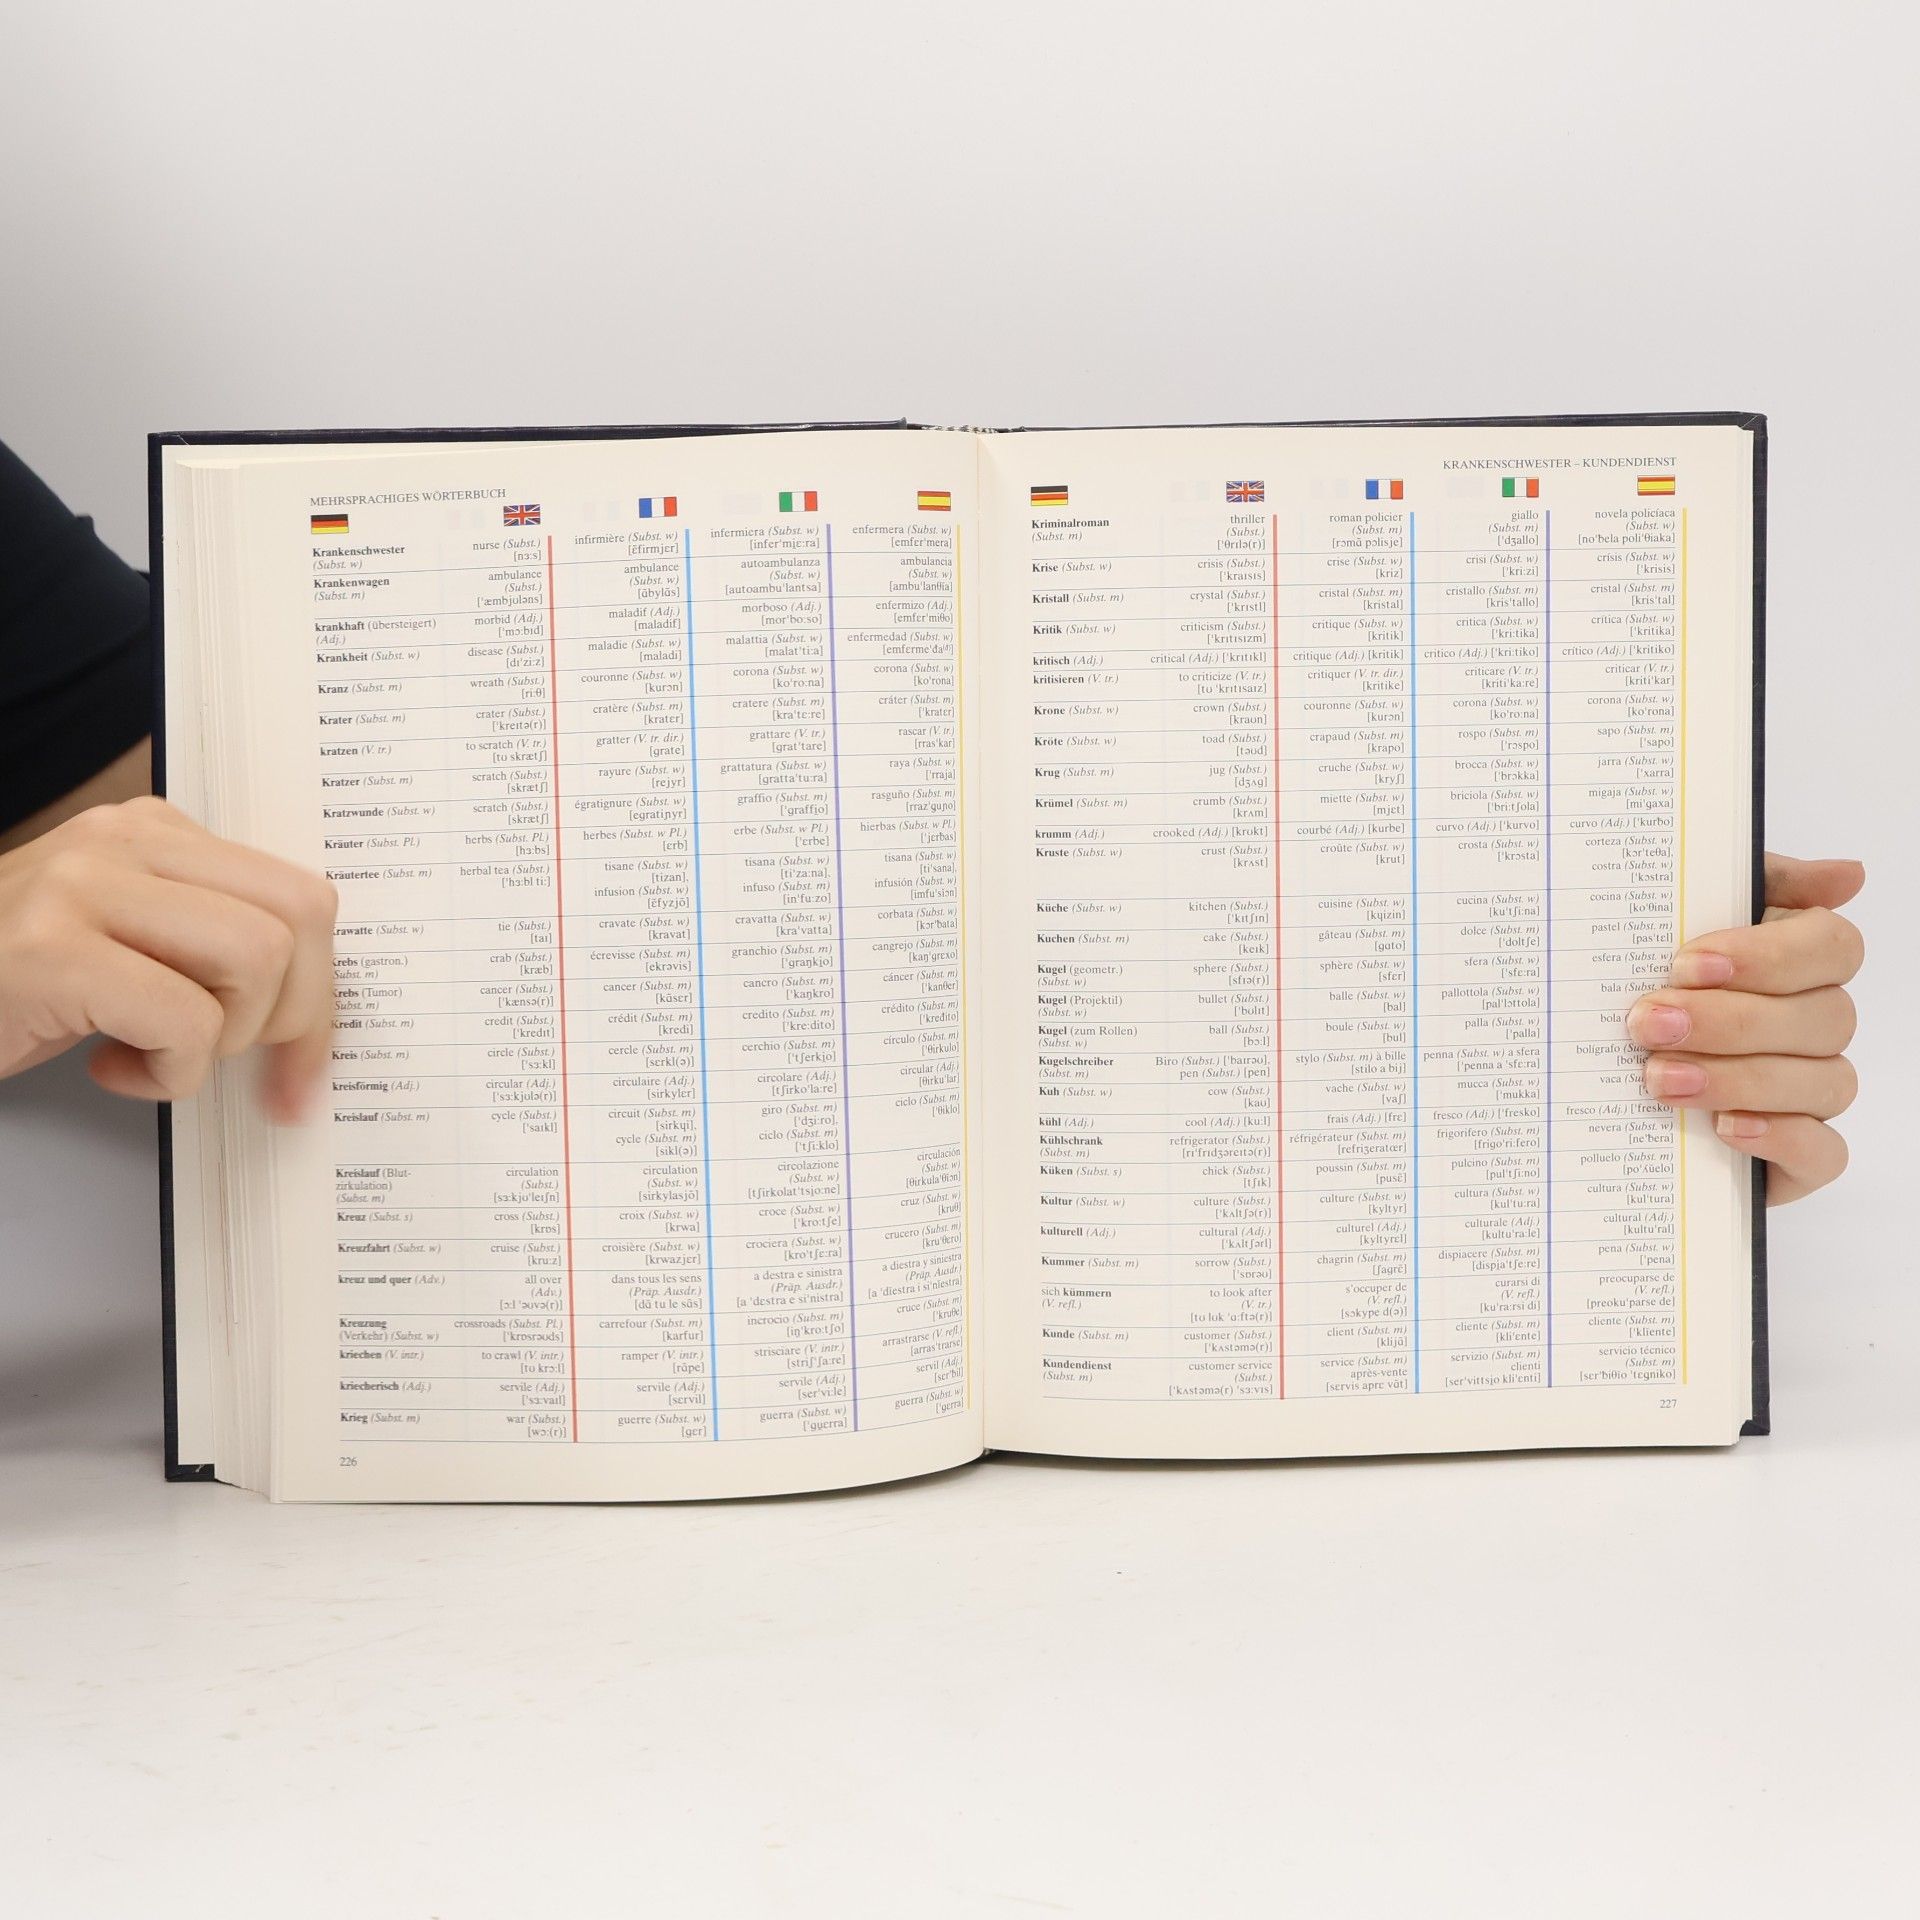 MEHRSPRACHIGES WÖRTERBUCH
Krankenschwester nurse (Subst.) infirmière (Subst. w) infermiera (Subst. w) enfermera (Subst. w)
(Subst. w) [nɜ:s] [ɛ̃firmjɛr] [infer'mi̯ɛ:ra] [emfɛr'mera]
Krankenwagen ambulance ambulance autoambulanza ambulancia
(Subst. m) (Subst.) (Subst. w) (Subst. w) (Subst. w)
['æmbjʊləns] [ɑ̃bylɑ̃s] [autoambu'lantsa] [ambu'lanθia]
krankhaft (übersteigert) morbid (Adj.) maladif (Adj.) morboso (Adj.) enfermizo (Adj.)
(Adj.) ['mɔ:bɪd] [maladif] [mor'bo:so] [emfɛr'miθo]
Krankheit (Subst. w) disease (Subst.) maladie (Subst. w) malattia (Subst. w) enfermedad (Subst. w)
[dɪ'zi:z] [maladi] [malat'ti:a] [emferme'da⁽ᵈ⁾]
Kranz (Subst. m) wreath (Subst.) couronne (Subst. w) corona (Subst. w) corona (Subst. w)
[ri:θ] [kurɔn] [ko'ro:na] [ko'rona]
Krater (Subst. m) crater (Subst.) cratère (Subst. m) cratere (Subst. m) cráter (Subst. m)
['kreɪtə(r)] [kratɛr] [kra'tɛ:re] ['kratɛr]
kratzen (V. tr.) to scratch (V. tr.) gratter (V. tr. dir.) grattare (V. tr.) rascar (V. tr.)
[tʊ skrætʃ] [grate] [grat'tare] [rras'kar]
Kratzer (Subst. m) scratch (Subst.) rayure (Subst. w) grattatura (Subst. w) raya (Subst. w)
[skrætʃ] [rejyr] [gratta'tu:ra] ['rraja]
Kratzwunde (Subst. w) scratch (Subst.) égratignure (Subst. w) graffio (Subst. m) rasguño (Subst. m)
[skrætʃ] [egratiɲyr] ['graffi̯o] [rraz'guɲo]
Kräuter (Subst. Pl.) herbs (Subst. Pl.) herbes (Subst. w Pl.) erbe (Subst. w Pl.) hierbas (Subst. w Pl.)
[hɜ:bs] [ɛrb] ['ɛrbe] ['jɛrbas]
Kräutertee (Subst. m) herbal tea (Subst.) tisane (Subst. w) tisana (Subst. w) tisana (Subst. w)
['hɜ:bl ti:] [tizan], [ti'za:na], [ti'sana],
infusion (Subst. w) infuso (Subst. m) infusión (Subst. w)
[ɛ̃fyzjɔ̃] [in'fu:zo] [imfu'siɔn]
rawatte (Subst. w) tie (Subst.) cravate (Subst. w) cravatta (Subst. w) corbata (Subst. w)
[taɪ] [kravat] [kra'vatta] [kɔr'bata]
Krebs (gastron.) crab (Subst.) écrevisse (Subst. m) granchio (Subst. m) cangrejo (Subst. m)
Subst. m) [kræb] [ekrəvis] ['graŋki̯o] [kaŋ'grɛxo]
Krebs (Tumor) cancer (Subst.) cancer (Subst. m) cancro (Subst. m) cáncer (Subst. m)
Subst. m) ['kænsə(r)] [kɑ̃sɛr] ['kaŋkro] ['kanθɛr]
Kredit (Subst. m) credit (Subst.) crédit (Subst. m) credito (Subst. m) crédito (Subst. m)
['kredɪt] [kredi] ['kre:dito] ['kređito]
Kreis (Subst. m) circle (Subst.) cercle (Subst. m) cerchio (Subst. m) círculo (Subst. m)
['sɜ:kl] [sɛrkl(ə)] ['tʃerki̯o] ['θirkulo]
kreisförmig (Adj.) circular (Adj.) circulaire (Adj.) circolare (Adj.) circular (Adj.)
['sɜ:kjʊlə(r)] [sirkylɛr] [tʃirko'la:re] [θirku'lar]
Kreislauf (Subst. m) cycle (Subst.) circuit (Subst. m) giro (Subst. m) ciclo (Subst. m)
['saɪkl] [sirkɥi], ['dʒi:ro], ['θiklo]
cycle (Subst. m) ciclo (Subst. m)
[sikl(ə)] ['tʃi:klo]
Kreislauf (Blut- circulation circulation circolazione circulación
zirkulation) (Subst.) (Subst. w) (Subst. w) (Subst. w)
(Subst. m) [sɜ:kjʊ'leɪʃn] [sirkylasjɔ̃] [tʃirkolat'tsjo:ne] [θirkula'θiɔn]
Kreuz (Subst. s) cross (Subst.) croix (Subst. w) croce (Subst. w) cruz (Subst. w)
[krɒs] [krwa] ['kro:tʃe] [kruθ]
Kreuzfahrt (Subst. w) cruise (Subst.) croisière (Subst. w) crociera (Subst. w) crucero (Subst. m)
[kru:z] [krwazjɛr] [kro'tʃɛ:ra] [kru'θɛro]
kreuz und quer (Adv.) all over dans tous les sens a destra e sinistra a diestra y siniestra
(Adv.) (Präp. Ausdr.) (Präp. Ausdr.) (Präp. Ausdr.)
[ɔ:l 'əʊvə(r)] [dɑ̃ tu le sɑ̃s] [a 'dɛstra e si'nistra] [a 'diestra i si'niestra]
Kreuzung crossroads (Subst. Pl.) carrefour (Subst. m) incrocio (Subst. m) cruce (Subst. m)
(Verkehr) (Subst. w) ['krɒsrəʊds] [karfur] [iŋ'kro:tʃo] ['kruθe]
kriechen (V. intr.) to crawl (V. intr.) ramper (V. intr.) strisciare (V. intr.) arrastrarse (V. refl.)
[tʊ krɔ:l] [rɑ̃pe] [striʃ'ʃa:re] [arras'trarse]
kriecherisch (Adj.) servile (Adj.) servile (Adj.) servile (Adj.) servil (Adj.)
['sɜ:vaɪl] [sɛrvil] [ser'vi:le] [ser'bil]
Krieg (Subst. m) war (Subst.) guerre (Subst. w) guerra (Subst. w) guerra (Subst. w)
[wɔ:(r)] [gɛr] ['gu̯ɛrra] ['gɛrra]
226
KRANKENSCHWESTER – KUNDENDIENST
Kriminalroman thriller roman policier giallo novela policíaca
(Subst. m) (Subst.) (Subst. m) (Subst. m) (Subst. w)
['θrɪlə(r)] [rɔmɑ̃ pɔlisje] ['dʒallo] [no'bela poli'θiaka]
Krise (Subst. w) crisis (Subst.) crise (Subst. w) crisi (Subst. w) crisis (Subst. w)
['kraɪsɪs] [kriz] ['kri:zi] ['krisis]
Kristall (Subst. m) crystal (Subst.) cristal (Subst. m) cristallo (Subst. m) cristal (Subst. m)
['krɪstl] [kristal] [kris'tallo] [kris'tal]
Kritik (Subst. w) criticism (Subst.) critique (Subst. w) critica (Subst. w) crítica (Subst. w)
['krɪtɪsɪzm] [kritik] ['kri:tika] ['kritika]
kritisch (Adj.) critical (Adj.) ['krɪtɪkl] critique (Adj.) [kritik] critico (Adj.) ['kri:tiko] crítico (Adj.) ['kritiko]
kritisieren (V. tr.) to criticize (V. tr.) critiquer (V. tr. dir.) criticare (V. tr.) criticar (V. tr.)
[tʊ 'krɪtɪsaɪz] [kritike] [kriti'ka:re] [kriti'kar]
Krone (Subst. w) crown (Subst.) couronne (Subst. w) corona (Subst. w) corona (Subst. w)
[kraʊn] [kurɔn] [ko'ro:na] [ko'rona]
Kröte (Subst. w) toad (Subst.) crapaud (Subst. m) rospo (Subst. m) sapo (Subst. m)
[təʊd] [krapo] ['rɔspo] ['sapo]
Krug (Subst. m) jug (Subst.) cruche (Subst. w) brocca (Subst. w) jarra (Subst. w)
[dʒʌg] [kryʃ] ['brɔkka] ['xarra]
Krümel (Subst. m) crumb (Subst.) miette (Subst. w) briciola (Subst. w) migaja (Subst. w)
[krʌm] [mjɛt] ['bri:tʃola] [mi'gaxa]
krumm (Adj.) crooked (Adj.) [krʊkt] courbé (Adj.) [kurbe] curvo (Adj.) ['kurvo] curvo (Adj.) ['kurbo]
Kruste (Subst. w) crust (Subst.) croûte (Subst. w) crosta (Subst. w) corteza (Subst. w)
[krʌst] [krut] ['krɔsta] [kɔr'teθa],
costra (Subst. w)
['kɔstra]
Küche (Subst. w) kitchen (Subst.) cuisine (Subst. w) cucina (Subst. w) cocina (Subst. w)
['kɪtʃɪn] [kɥizin] [ku'tʃi:na] [ko'θina]
Kuchen (Subst. m) cake (Subst.) gâteau (Subst. m) dolce (Subst. m) pastel (Subst. m)
[keɪk] [gɑto] ['doltʃe] [pas'tɛl]
Kugel (geometr.) sphere (Subst.) sphère (Subst. w) sfera (Subst. w) esfera (Subst. w)
(Subst. w) [sfɪə(r)] [sfɛr] ['sfɛ:ra] [es'fera]
Kugel (Projektil) bullet (Subst.) balle (Subst. w) pallottola (Subst. w) bala (Subst. w)
(Subst. w) ['bʊlɪt] [bal] [pal'lɔttola]
Kugel (zum Rollen) ball (Subst.) boule (Subst. w) palla (Subst. w) bola
(Subst. w) [bɔ:l] [bul] ['palla]
Kugelschreiber Biro (Subst.) ['baɪrəʊ], stylo (Subst. m) à bille penna (Subst. w) a sfera bolígrafo
(Subst. m) pen (Subst.) [pen] [stilo a bij] ['penna a 'sfɛ:ra]
Kuh (Subst. w) cow (Subst.) vache (Subst. w) mucca (Subst. w) vaca
[kaʊ] [vaʃ] ['mukka]
kühl (Adj.) cool (Adj.) [ku:l] frais (Adj.) [frɛ] fresco (Adj.) ['fresko] fresco (Adj.) ['fresko]
Kühlschrank refrigerator (Subst.) réfrigérateur (Subst. m) frigorifero (Subst. m) nevera (Subst. w)
(Subst. m) [rɪ'frɪdʒəreɪtə(r)] [refriʒeratœr] [frigo'ri:fero] [ne'bera]
Küken (Subst. s) chick (Subst.) poussin (Subst. m) pulcino (Subst. m) polluelo (Subst. m)
[tʃɪk] [pusɛ̃] [pul'tʃi:no] [po'ʎu̯elo]
Kultur (Subst. w) culture (Subst.) culture (Subst. w) cultura (Subst. w) cultura (Subst. w)
['kʌltʃə(r)] [kyltyr] [kul'tu:ra] [kul'tura]
kulturell (Adj.) cultural (Adj.) culturel (Adj.) culturale (Adj.) cultural (Adj.)
['kʌltʃərl] [kyltyrɛl] [kultu'ra:le] [kultu'ral]
Kummer (Subst. m) sorrow (Subst.) chagrin (Subst. m) dispiacere (Subst. m) pena (Subst. w)
['sɒrəʊ] [ʃagrɛ̃] [dispja'tʃe:re] ['pena]
sich kümmern to look after s'occuper de curarsi di preocuparse de
(V. refl.) (V. tr.) (V. refl.) (V. refl.) (V. refl.)
[tʊ lʊk 'ɑ:ftə(r)] [sɔkype d(ə)] [ku'ra:rsi di] [preoku'parse de]
Kunde (Subst. m) customer (Subst.) client (Subst. m) cliente (Subst. m) cliente (Subst. m)
['kʌstəmə(r)] [klijɑ̃] [kli'ɛnte] ['kliente]
Kundendienst customer service service (Subst. m) servizio (Subst. m) servicio técnico
(Subst. m) (Subst.) après-vente clienti (Subst. m)
['kʌstəmə(r) 'sɜ:vɪs] [sɛrvis aprɛ vɑ̃t] [ser'vittsjo kli'ɛnti] [sɛr'biθio 'tɛgniko]
227